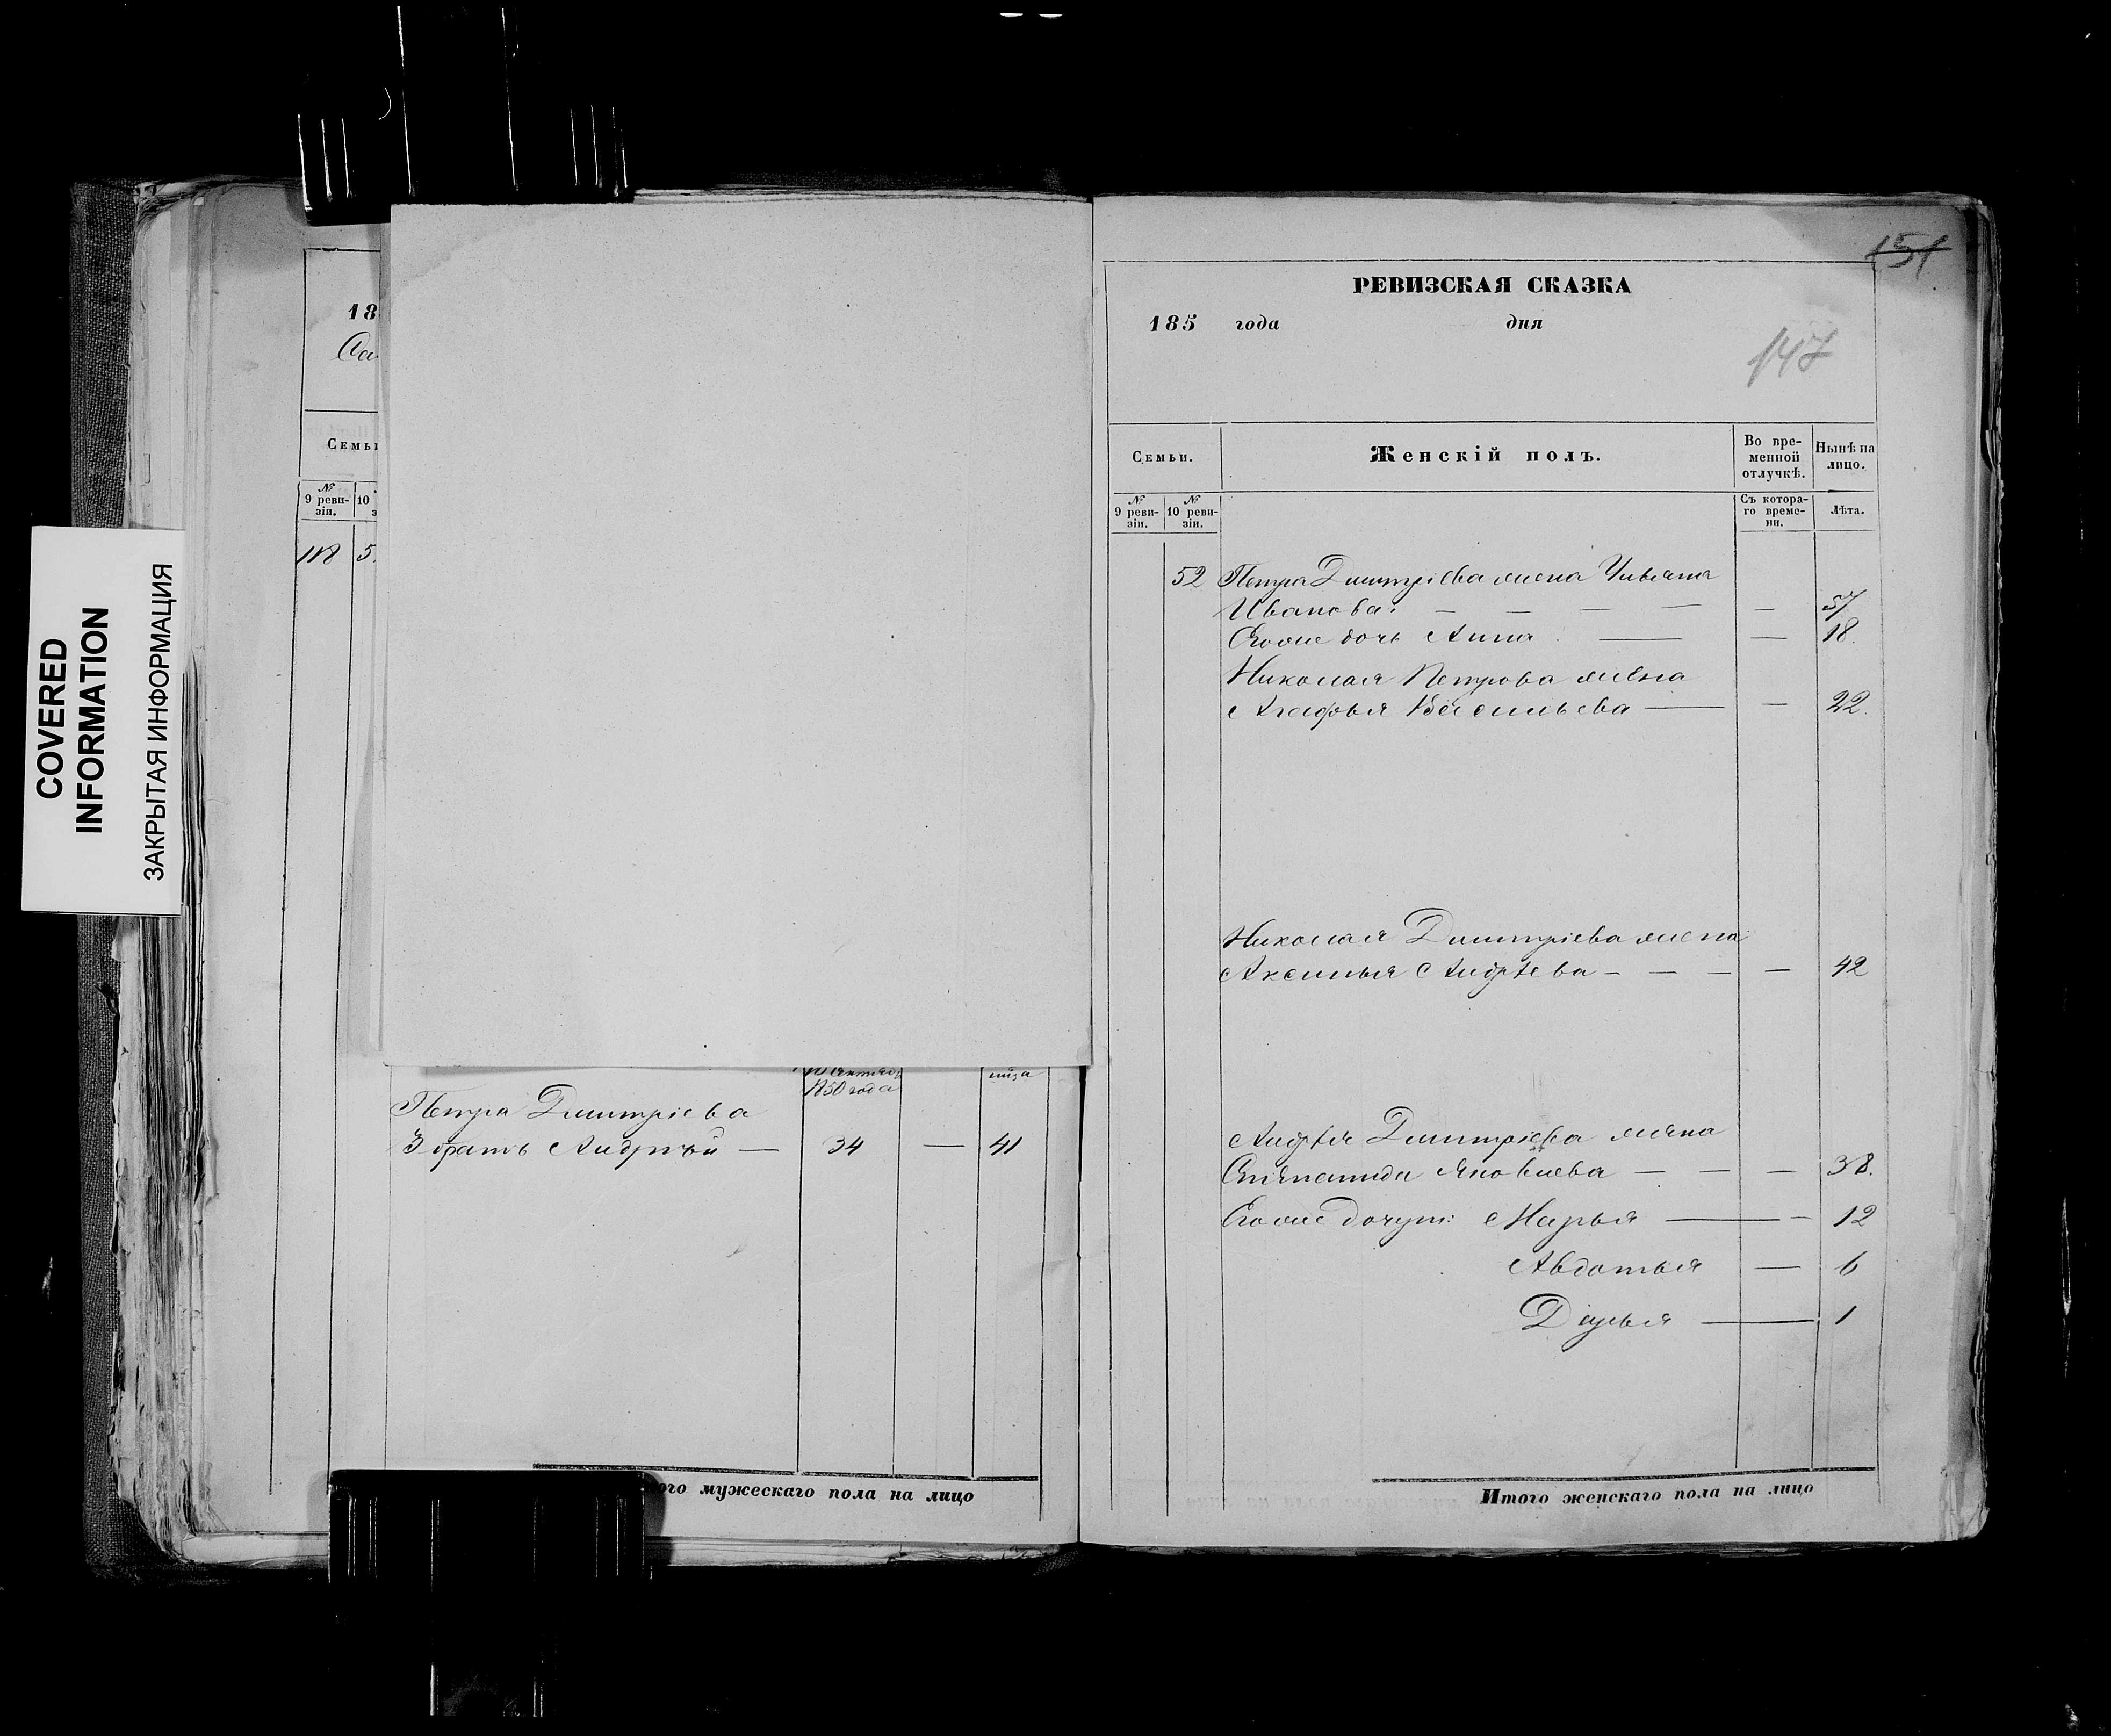 COVERED
INFORMATION
ЗАКРЫТАЯ ИНФОРМАЦИЯ
18
Семьи
№ 9 реви-зіи.
10
118 5
1850 года
лица
Петра Дмитріева
3 братъ Андрѣй — 34 — 41
ого мужескаго пола на лицо
151
РЕВИЗСКАЯ СКАЗКА
185 года дня
147
Семьи.
Женскій полъ.
Во вре-менной отлучкѣ.
Нынѣ на лицо.
№ 9 реви-зіи.
№ 10 реви-зіи.
Съ котора-го време-ни.
Лѣта.
52 Петра Дмитріева жена Ульяна
Иванова. — — — — — 57
Егоже дочь Анна. — — 18.
Николая Петрова жена
Агафья Васильева — — 22.
Николая Дмитріева жена
Аксинья Андрѣева — — — — 42
Андрѣя Дмитріева жена
Яковлева — — — 38.
Егоже дочери: Марья — — 12
Авдотья — 6
Дарья — 1
Итого женскаго пола на лицо